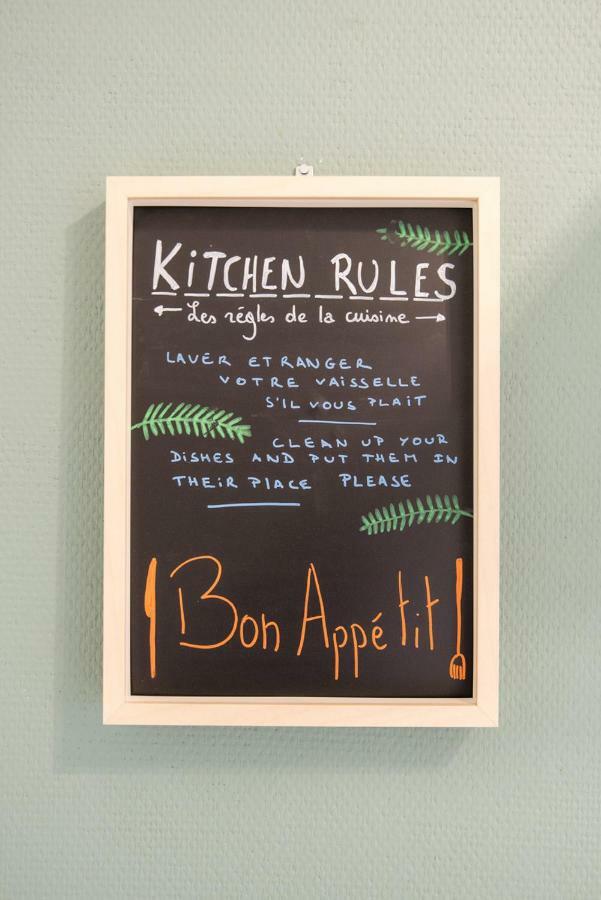 KITCHEN RULES
Les régles de la cuisine
LAVER ET RANGER
VOTRE VAISSELLE
S'IL VOUS PLAIT
CLEAN UP YOUR
DISHES AND PUT THEM IN
THEIR PLACE PLEASE
Bon Appétit